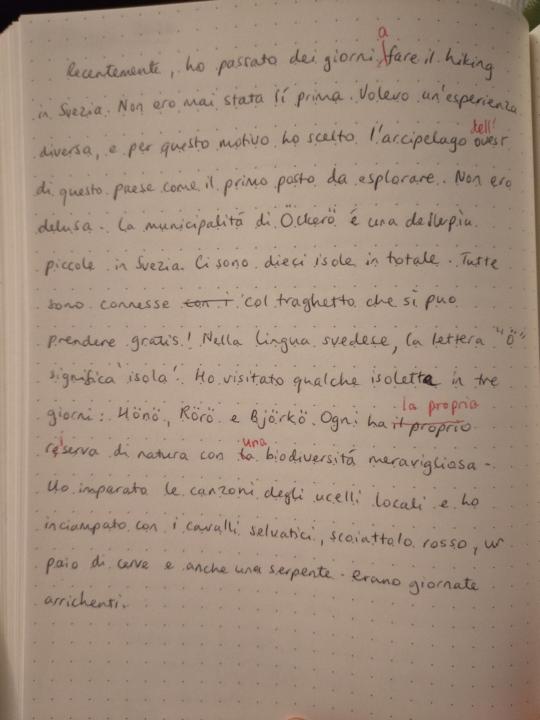 a
Recentemente, ho passato dei giorni fare il hiking
in Svezia. Non ero mai stata lí prima. Volevo un'esperienza
dell'
diversa, e per questo motivo ho scelto l'arcipelago ovest
di questo paese come il primo posto da esplorare. Non ero
delusa. La municipalitá di Öckerö é una delle piu
piccole in Svezia. Ci sono dieci isole in totale. Tutte
sono connesse con i col traghetto che si puo
prendere gratis! Nella lingua svedese, la lettera "ö"
significa 'isola'. Ho visitato qualche isoletta in tre
la propria
giorni: Hönö, Rörö e Björkö. Ogni ha il proprio
una
riserva di natura con la biodiversitá meravigliosa.
Ho imparato le canzoni degli ucelli locali e ho
inciampato con i cavalli selvatici, scoiattolo rosso, un
paio di cerve e anche una serpente. Erano giornate
arrichenti.